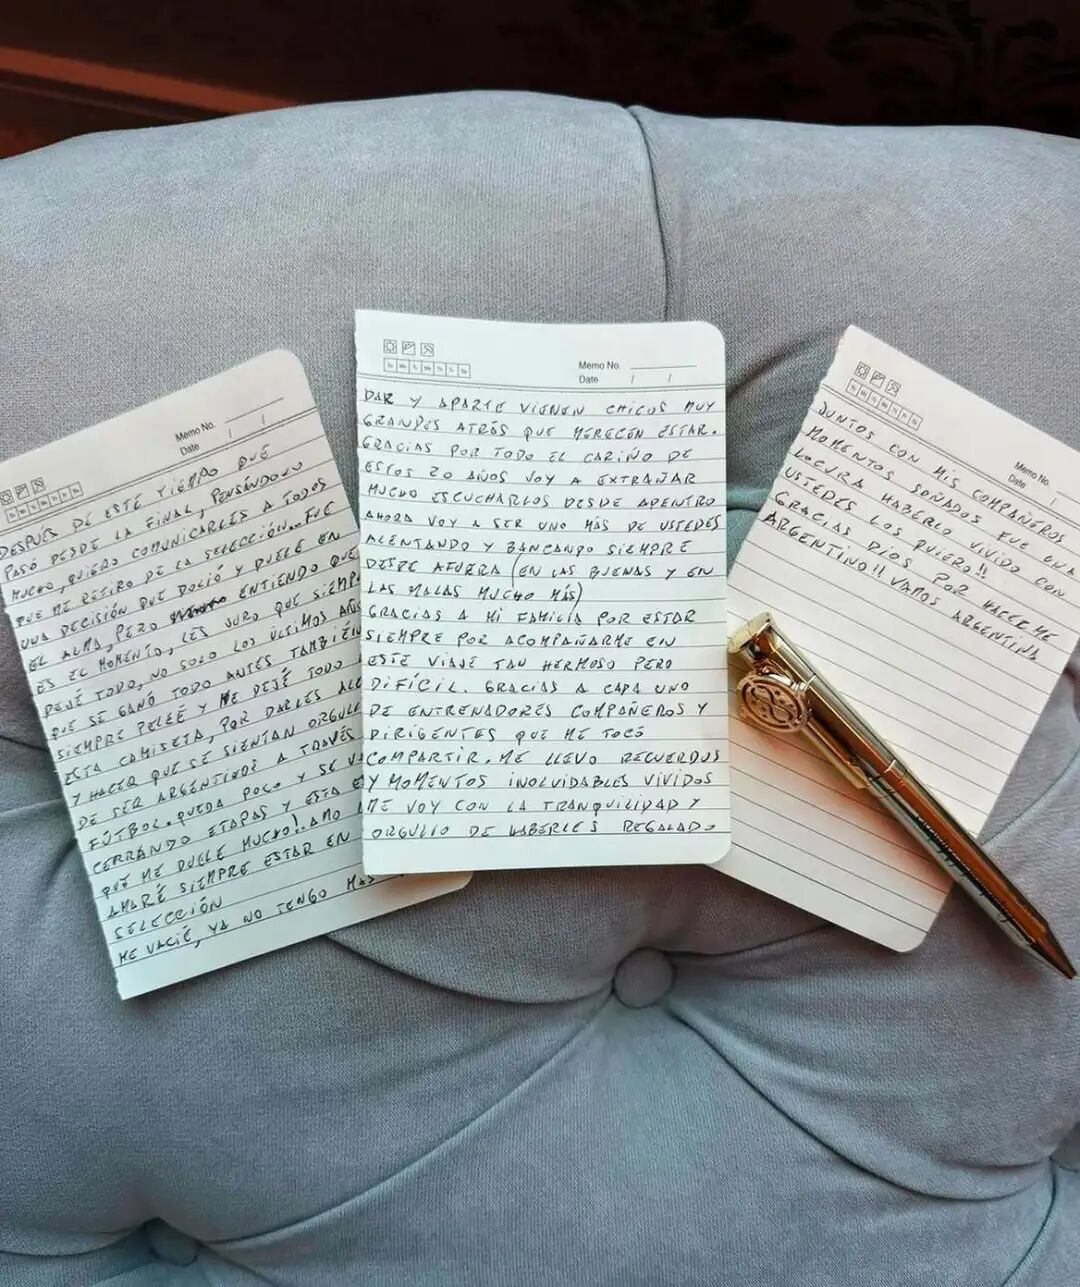 Memo No.
Date / /
DESPUÉS DE ESTE TIEMPO QUE
PASÓ DESDE LA FINAL, PENSÁNDOLO
MUCHO, QUIERO COMUNICARLES A TODOS
QUE ME RETIRO DE LA SELECCIÓN... FUE
UNA DECISIÓN QUE DOLIÓ Y DUELE EN
EL ALMA, PERO ENTIENDO QUE
ES EL MOMENTO, LES JURO QUE SIEMP
DEJÉ TODO, NO SOLO LOS ÚLTIMOS AÑOS
QUE SE GANÓ TODO ANTES TAMBIÉN
SIEMPRE PELEÉ Y ME DEJÉ TODO
ESTA CAMISETA, POR DARLES ALE
Y HACER QUE SE SIENTAN ORGULL
DE SER ARGENTINOS A TRAVÉS
FÚTBOL. QUEDA POCO Y SE V
CERRANDO ETAPAS Y ESTA E
QUE ME DUELE MUCHO! AMO
AMARÉ SIEMPRE ESTAR EN
SELECCIÓN
ME VACIÉ, YA NO TENGO MÁS
Memo No.
Date / /
DAR Y APARTE VIENEN CHICOS MUY
GRANDES ATRÁS QUE MERECEN ESTAR.
GRACIAS POR TODO EL CARIÑO DE
ESTOS 20 AÑOS VOY A EXTRAÑAR
MUCHO ESCUCHARLOS DESDE ADENTRO
AHORA VOY A SER UNO MÁS DE USTEDES
ALENTANDO Y BANCANDO SIEMPRE
DESDE AFUERA (EN LAS BUENAS Y EN
LAS MALAS MUCHO MÁS)
GRACIAS A MI FAMILIA POR ESTAR
SIEMPRE POR ACOMPAÑARME EN
ESTE VIAJE TAN HERMOSO PERO
DIFÍCIL. GRACIAS A CADA UNO
DE ENTRENADORES COMPAÑEROS Y
DIRIGENTES QUE ME TOCÓ
COMPARTIR. ME LLEVO RECUERDOS
Y MOMENTOS INOLVIDABLES VIVIDOS
ME VOY CON LA TRANQUILIDAD Y
ORGULLO DE HABERLES REGALADO
Memo No.
Date / /
JUNTOS CON MIS COMPAÑEROS
MOMENTOS SOÑADOS FUE UNA
LOCURA HABERLO VIVIDO CON
USTEDES LOS QUIERO!!
GRACIAS DIOS POR HACERME
ARGENTINO!! VAMOS ARGENTINA